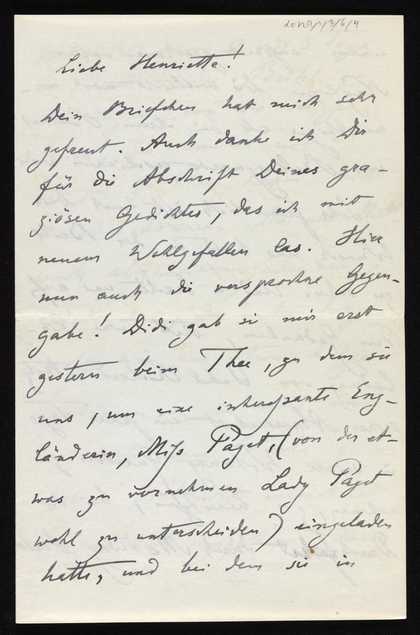 Liebe Henriette!
Dein Briefchen hat mich sehr
gefreut. Auch danke ich Dir
für die Abschrift Deines gra-
ziösen Gedichtes, das ich mit
neuem Wohlgefallen las. Hier
nun auch die versprochne Gegen-
gabe! Didi gab sie mir erst
gestern beim Thee, zu dem sie
uns, um eine interessante Eng-
länderin, Miss Paget, (von der et-
was zu vornehmen Lady Paget
wohl zu unterscheiden) eingeladen
hatte, und bei dem sie in